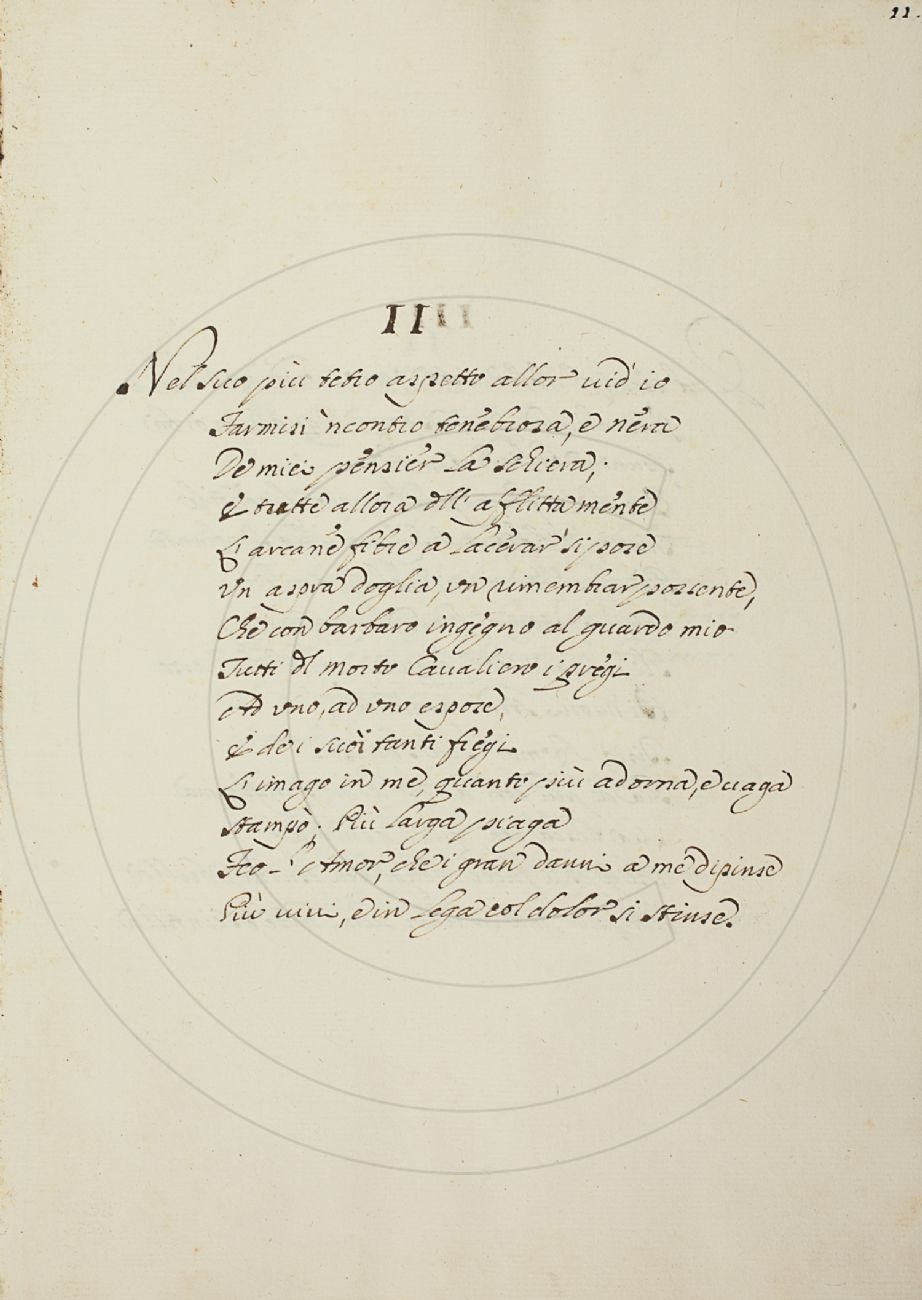 11.
II
Nel suo più tetro aspetto allor vid' io
Farmisi 'ncontro tenebrosa, e nera
De' miei pensier la schiera;
E tutte allora dell' afflitta mente
L' arcane fibre a lacerar si pose
Un aspra doglia, un rimembrar possente,
Che con barbaro ingegno al guardo mio
Tutti del morto Cavaliero i pregi
Ad uno, ad uno espose,
E de i suoi tanti fregi
L' imago in me, quanto più adorna, e vaga
Stampò; Più larga piaga
Feo l' Amor, che i gran danni a me dipinse
Più vivi, e in lega col dolor si strinse.